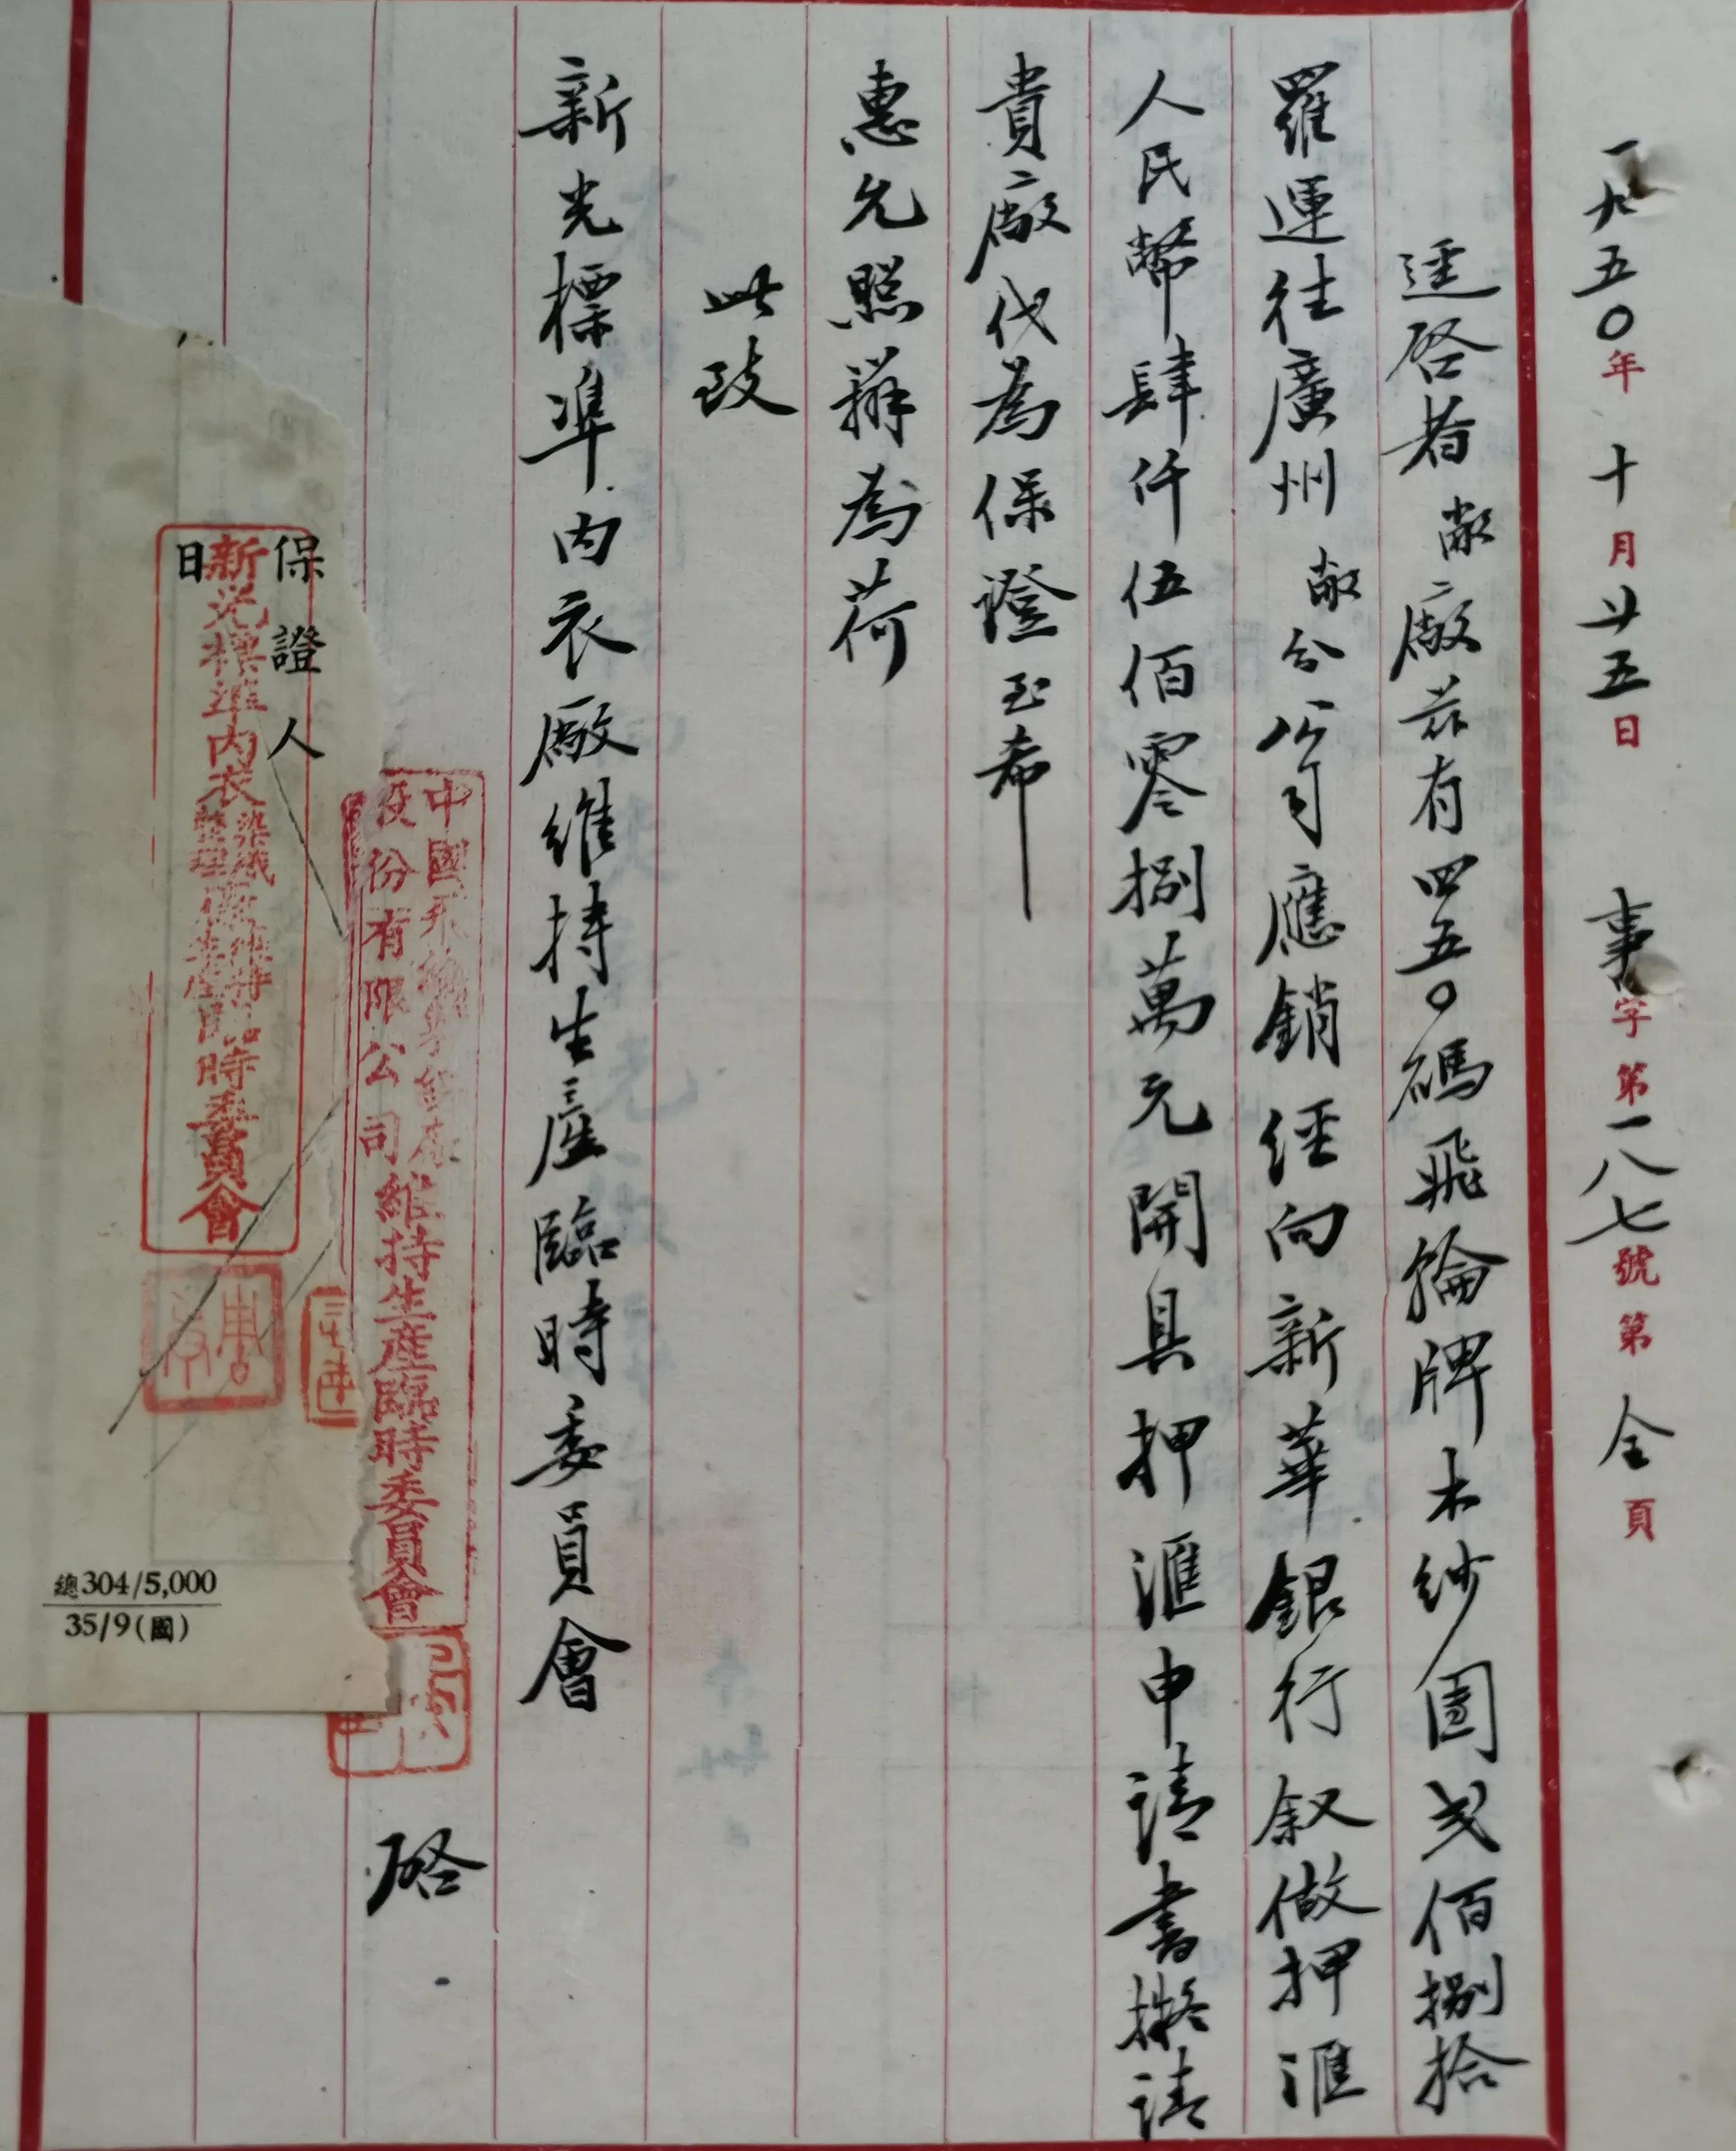 一九五〇年十月廿五日 事字第一八七號第全頁
逕啓者敝廠茲有四五〇碼飛輪牌木紗團弍佰捌拾
羅運往廣州敝分公司應銷經向新華銀行叙做押滙
人民幣肆仟伍佰零捌萬元開具押滙申請書擬請
貴廠代為保證至希
惠允照辦為荷
此致
新光標準內衣廠維持生產臨時委員會
中國
股份有限公司維持生產臨時委員會
啓
保證人
新光標準內衣染織整理廠維持生產臨時委員會
日
總304/5,000
35/9(國)